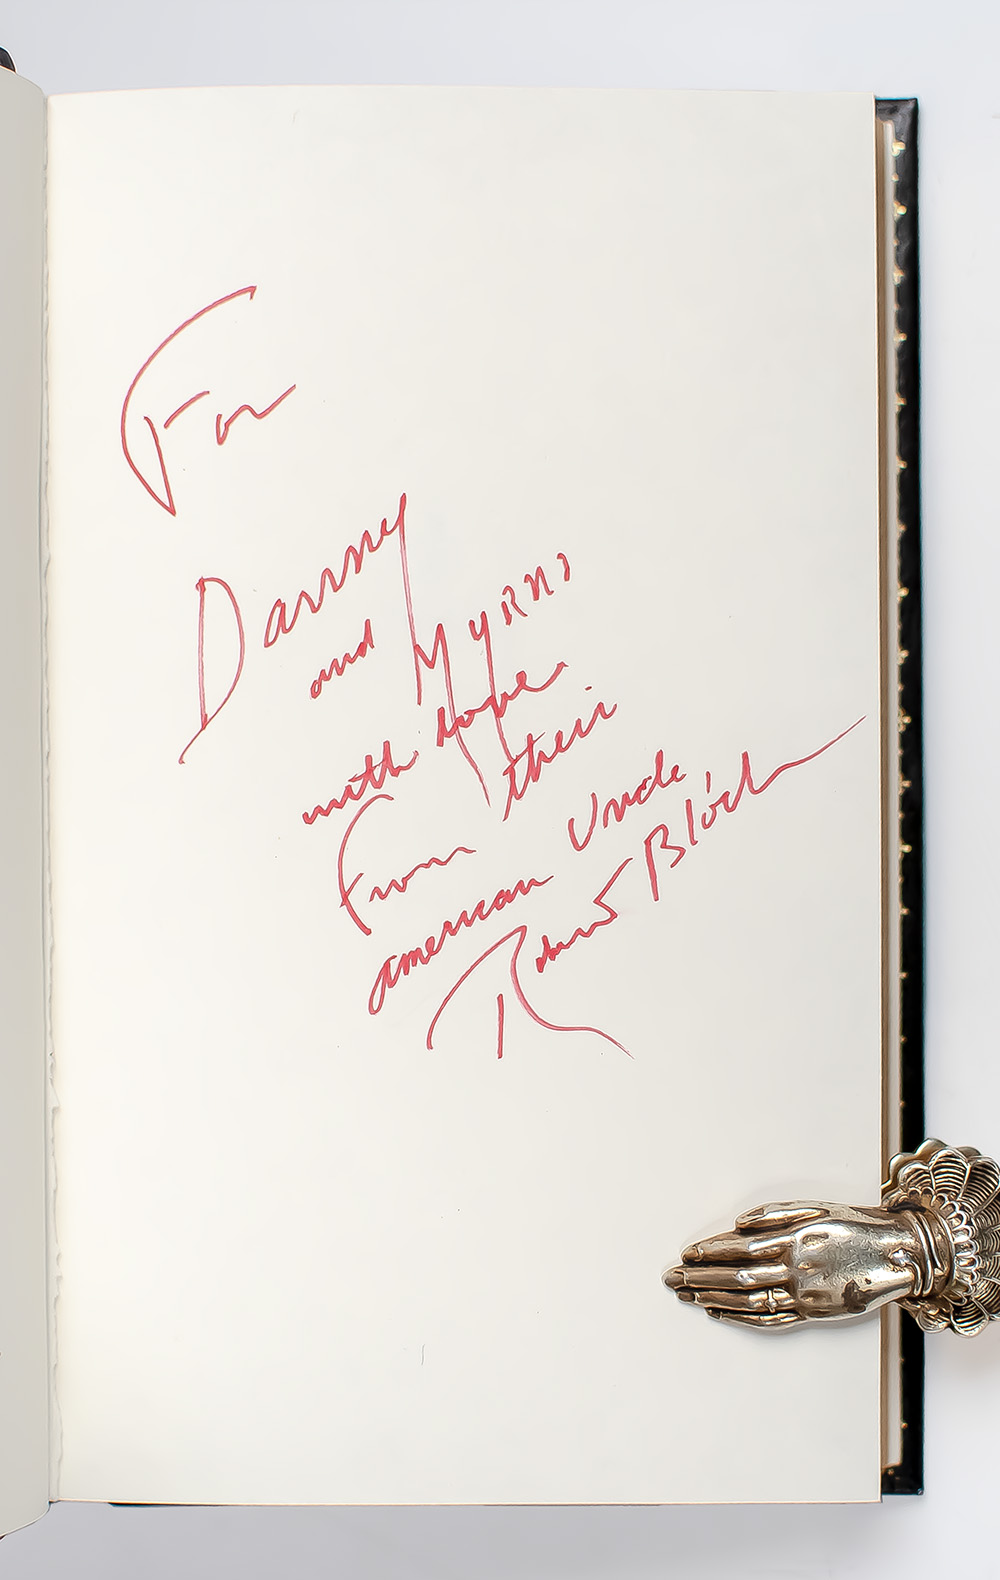 For
Danny
and Myrna
with love
From their
american Uncle
Robert Bloch